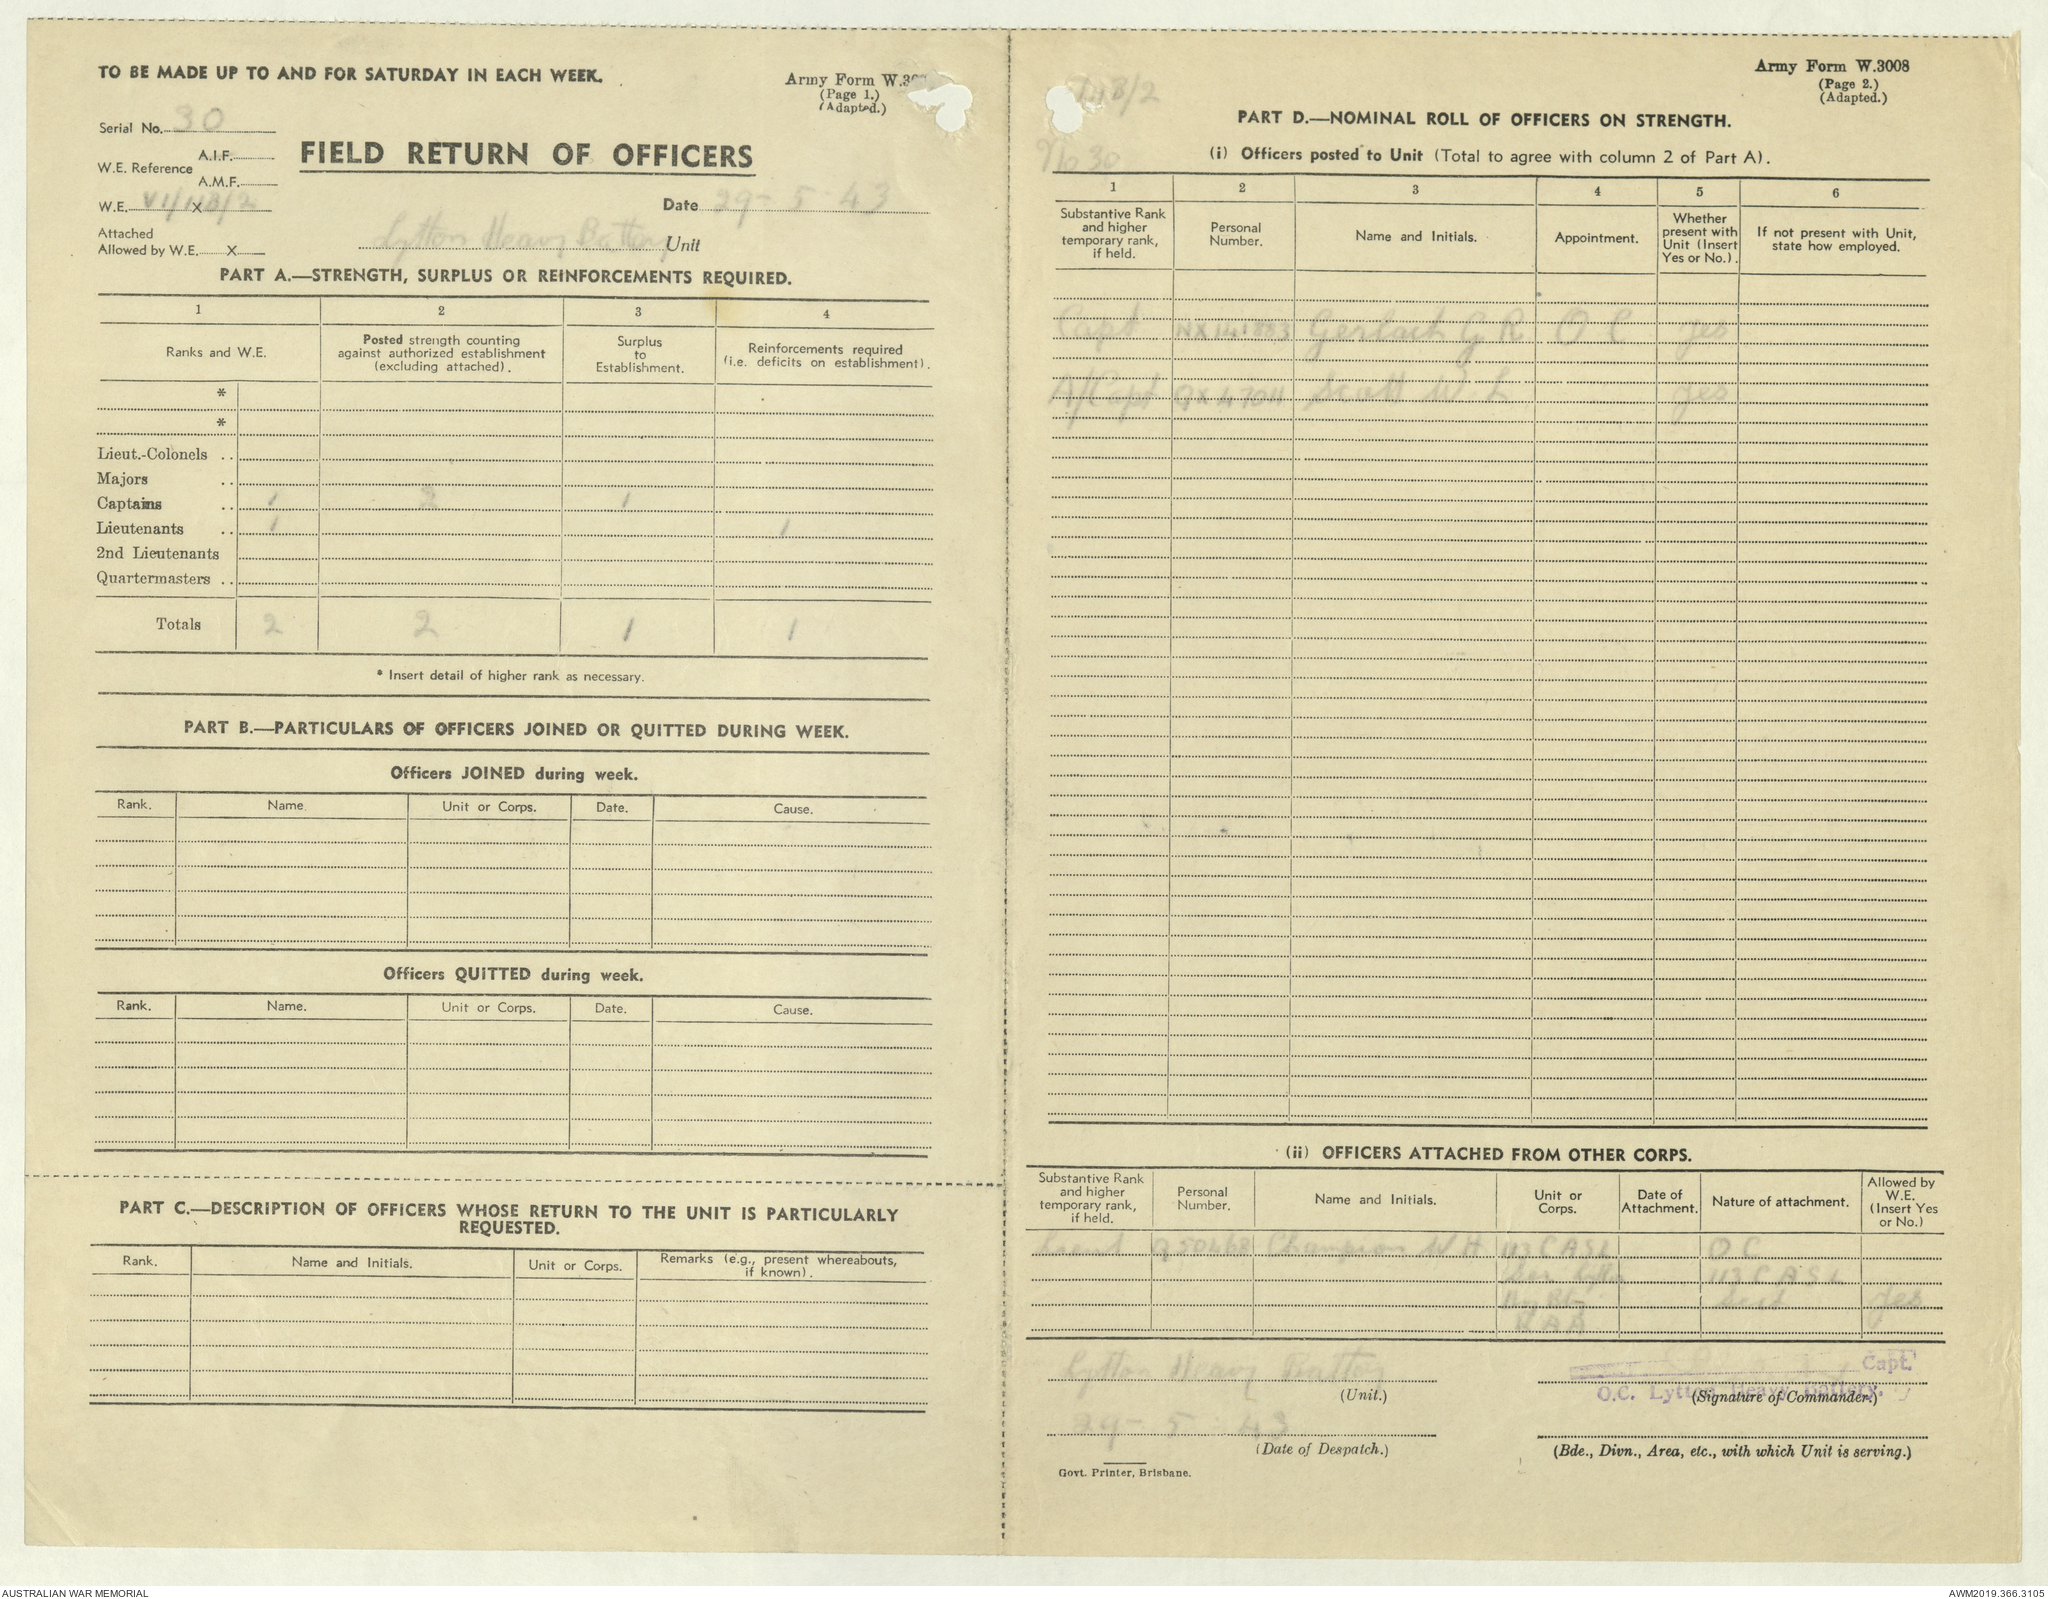 TO BE MADE UP TO AND FOR SATURDAY IN EACH WEEK.
Army Form W.
(Page 1.)
(Adapted.)
Serial No. 30
W.E. Reference A.I.F.
A.M.F.
FIELD RETURN OF OFFICERS
W.E. X
Date 29-5-43
Attached
Allowed by W.E. X
Lytton Heavy Battery Unit
PART A.—STRENGTH, SURPLUS OR REINFORCEMENTS REQUIRED.
1 2 3 4
Ranks and W.E.
Posted strength counting
against authorized establishment
(excluding attached).
Surplus
to
Establishment.
Reinforcements required
(i.e. deficits on establishment).
*
*
Lieut.-Colonels ..
Majors ..
Captains .. 1 2 1
Lieutenants .. 1 1
2nd Lieutenants
Quartermasters ..
Totals 2 2 1 1
* Insert detail of higher rank as necessary.
PART B.—PARTICULARS OF OFFICERS JOINED OR QUITTED DURING WEEK.
Officers JOINED during week.
Rank. Name. Unit or Corps. Date. Cause.
Officers QUITTED during week.
Rank. Name. Unit or Corps. Date. Cause.
PART C.—DESCRIPTION OF OFFICERS WHOSE RETURN TO THE UNIT IS PARTICULARLY
REQUESTED.
Rank. Name and Initials. Unit or Corps. Remarks (e.g., present whereabouts,
if known).
Army Form W.3008
(Page 2.)
(Adapted.)
No 30
PART D.—NOMINAL ROLL OF OFFICERS ON STRENGTH.
(i) Officers posted to Unit (Total to agree with column 2 of Part A).
1 2 3 4 5 6
Substantive Rank
and higher
temporary rank,
if held.
Personal
Number.
Name and Initials.
Appointment.
Whether
present with
Unit (Insert
Yes or No.).
If not present with Unit,
state how employed.
Capt NX141883 Gerlach G R O C yes
A/Capt QX4704 Scott W. L yes
(ii) OFFICERS ATTACHED FROM OTHER CORPS.
Substantive Rank
and higher
temporary rank,
if held.
Personal
Number.
Name and Initials.
Unit or
Corps.
Date of
Attachment.
Nature of attachment.
Allowed by
W.E.
(Insert Yes
or No.)
Lieut Q50468 Champion W H 113 C A S L O C
113 C A S L
yes
R A A
Lytton Heavy Battery
(Unit.)
Capt.
O.C. Lytton Heavy Battery.
(Signature of Commander.)
29-5-43
(Date of Despatch.)
(Bde., Divn., Area, etc., with which Unit is serving.)
Govt. Printer, Brisbane.
AUSTRALIAN WAR MEMORIAL
AWM2019.366.3105